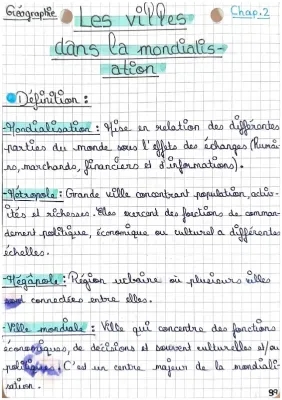 Géographie
Chap.2
Les villes
dans la mondialis-
ation
Définition :
-Mondialisation : Mise en relation des différentes
parties du monde sous l'effets des échanges (humai-
ns, marchands, financiers et d'informations).
-Métropole : Grande ville concentrant population, activ-
ités et richesses. Elles exercent des fonctions de comman-
dement politique, économique ou culturel a différentes
échelles.
-Mégapole : Région urbaine où plusieurs villes
sont connectées entre elles.
-Ville mondiale : Ville qui concentre des fonctions
économiques, de décisions et souvent culturelles et/ou
politiques. C'est un centre majeur de la mondiali-
sation.